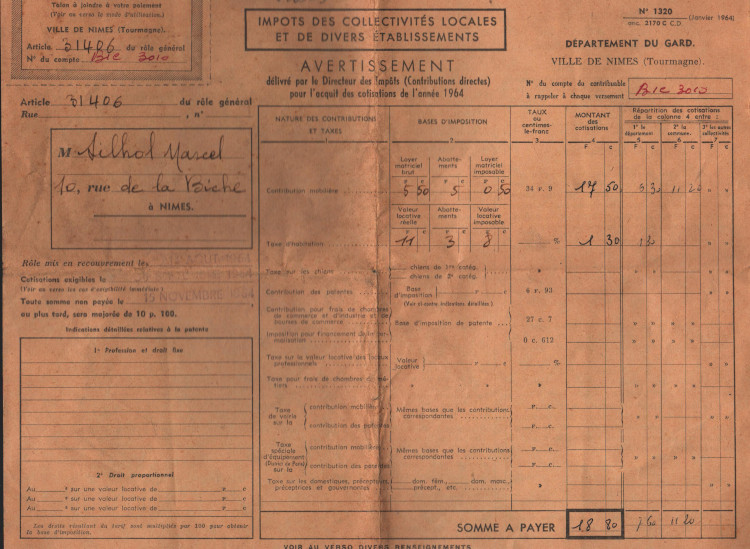 Talon à joindre à votre paiement
(Voir au verso le mode d'utilisation.)
VILLE DE NIMES (Tourmagne).
Article 31406 du rôle général
N° du compte BIC 3010
IMPOTS DES COLLECTIVITÉS LOCALES
ET DE DIVERS ÉTABLISSEMENTS
AVERTISSEMENT
délivré par le Directeur des Impôts (Contributions directes)
pour l'acquit des cotisations de l'année 1964
N° 1320
(Janvier 1964)
anc. 2170 C C.D.
DÉPARTEMENT DU GARD.
VILLE DE NIMES (Tourmagne).
N° du compte du contribuable
à rappeler à chaque versement
BIC 3010
Article 31406 du rôle général
Rue , n°
M Silhol Marcel
10, rue de la Biche
à NIMES.
Rôle mis en recouvrement le
Cotisations exigibles le
(Voir au verso les cas d'exigibilité immédiate.)
Toute somme non payée le
15 NOVEMBRE 1964
au plus tard, sera majorée de 10 p. 100.
Indications détaillées relatives à la patente
1° Profession et droit fixe
2° Droit proportionnel
Au e sur une valeur locative de F c
Au e sur une valeur locative de F c
Au e sur une valeur locative de F c
Les droits résultant du tarif sont multipliés par 100 pour obtenir
la base d'imposition.
NATURE DES CONTRIBUTIONS
ET TAXES
1
BASES D'IMPOSITION
2
TAUX
ou
centimes-
le-franc
3
MONTANT
des
cotisations
4
Répartition des cotisations
de la colonne 4 entre :
1° le
département
5
2° la
commune.
6
3° les autres
collectivités
7
F c F c F c F c
Loyer
matriciel
brut
Abatte-
ments
Loyer
matriciel
imposable
Contribution mobilière 5 50 5 0 50 34 r. 9 17 50 6 30 11 20 » »
Valeur
locative
réelle
Abatte-
ments
Valeur
locative
imposable
Taxe d'habitation 11 3 8 % 1 30 1 30 » »
Taxe sur les chiens
chiens de 1re catég.
chiens de 2e catég.
Contribution des patentes
Base
d'imposition
(Voir ci-contre indications détaillées.)
6 r. 93
Contribution pour frais de chambres
de commerce et d'industrie et de
bourses de commerce
27 c. 7
Base d'imposition de patente
0 c. 612
Taxe sur la valeur locative des locaux
professionnels
Valeur
locative
%
Taxe pour frais de chambres de mé-
tiers
Taxe
de voirie
sur la
contribution mobilière
contribution des patentes
Mêmes bases que les contributions
correspondantes
Taxe
spéciale
d'équipement
(District de Paris)
sur la
contribution mobilière
contribution des patentes
Mêmes bases que les contributions
correspondantes
Taxe sur les domestiques, précepteurs,
préceptrices et gouvernantes
dom. fém., dom. masc.,
précept., etc.
SOMME A PAYER 18 80 7 60 11 20
VOIR AU VERSO DIVERS RENSEIGNEMENTS